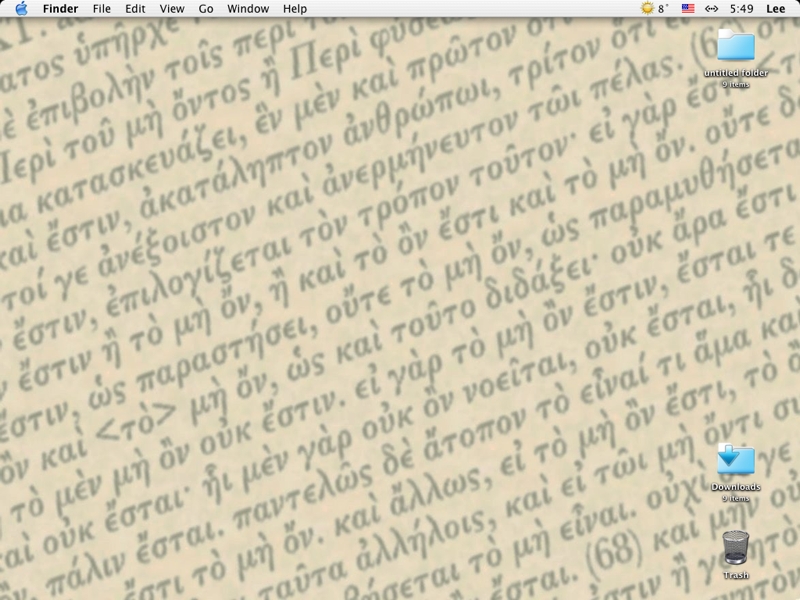 Finder File Edit View Go Window Help 8° 5:49 Lee
untitled folder
9 items
ατος ὑπῆρχε
ἐπιβολὴν τοῖς περὶ
Περὶ τοῦ μὴ ὄντος ἢ Περὶ
κατασκευάζει, ἓν μὲν καὶ πρῶτον
καὶ ἔστιν, ἀκατάληπτον ἀνθρώπωι, τρίτον ὅτι
τοί γε ἀνέξοιστον καὶ ἀνερμήνευτον τῶι πέλας.
ἔστιν, ἐπιλογίζεται τὸν τρόπον τοῦτον· εἰ γὰρ
ἔστιν ἢ τὸ μὴ ὄν, ἢ καὶ τὸ ὂν ἔστι καὶ τὸ μὴ ὄν. οὔτε
ἔστιν, ὡς παραστήσει, οὔτε τὸ μὴ ὄν, ὡς παραμυθήσεται
ὂν καὶ <τὸ> μὴ ὄν, ὡς καὶ τοῦτο διδάξει· οὐκ ἄρα ἔστι
τὸ μὲν μὴ ὂν οὐκ ἔστιν. εἰ γὰρ τὸ μὴ ὂν ἔστιν, ἔσται τε
καὶ οὐκ ἔσται· ἧι μὲν γὰρ οὐκ ὂν νοεῖται, οὐκ ἔσται, ἧι
πάλιν ἔσται. παντελῶς δὲ ἄτοπον τὸ εἶναί τι ἅμα καὶ
ἔστι τὸ μὴ ὄν. καὶ ἄλλως, εἰ τὸ μὴ ὂν ἔστι, τὸ
ταῦτα ἀλλήλοις, καὶ εἰ τῶι μὴ ὄντι
τὸ μὴ εἶναι. οὐχὶ
ἔσται. (68) καὶ
Downloads
9 items
Trash